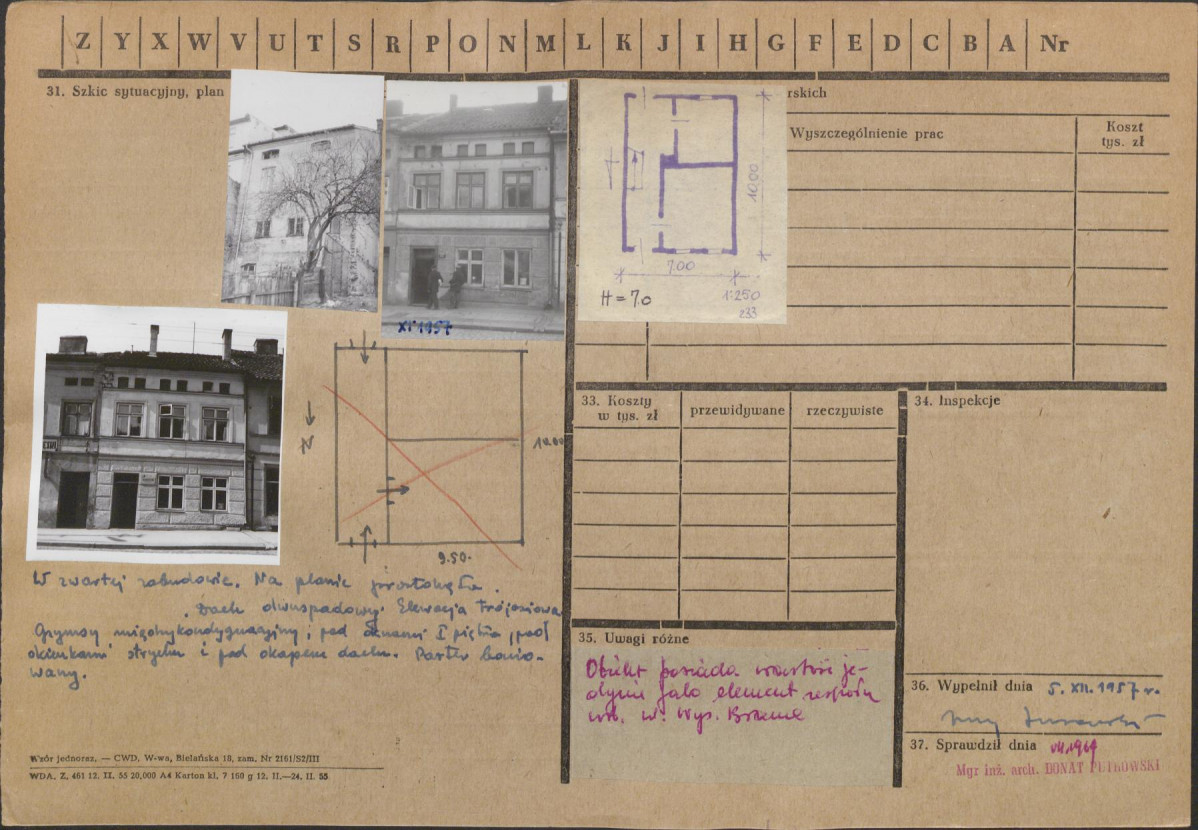 Z Y X W V U T S R P O N M L K J I H G F E D C B A Nr
31. Szkic sytuacyjny, plan
rskich
Wyszczególnienie prac
Koszt
tys. zł
XI 1957
10.00
7.00
H = 7.0
1:250
233
N
10.00
9.50.
W zwartej zabudowie. Na planie prostokąta.
Dach dwuspadowy. Elewacja trójosiowa
Gzymsy międzykondygnacyjny, pod oknami I piętra, pod
okienkami strychu i pod okapem dachu. Parter bonio-
wany.
33. Koszty
w tys. zł
przewidywane
rzeczywiste
34. Inspekcje
35. Uwagi różne
Obiekt posiada wartość je-
dynie jako element zespołu
w. Wys. Brzeme
36. Wypełnił dnia 5. XII. 1957 r.
37. Sprawdził dnia VII 1969
Mgr inż. arch. DONAT PUTKOWSKI
Wzór jednoraz. — CWD, W-wa, Bielańska 18, zam. Nr 2161/S2/III
WDA. Z. 461 12. II. 55 20,000 A4 Karton kl. 7 160 g 12. II.—24. II. 55